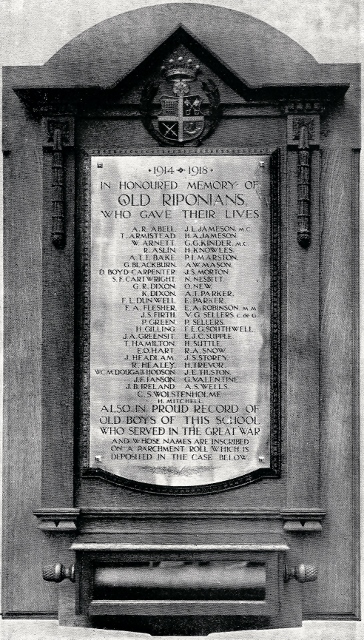 • 1914 ✦ 1918 •
IN HONOURED MEMORY OF
OLD RIPONIANS,
WHO GAVE THEIR LIVES
A. R. ABELL. J. L. JAMESON. M.C.
T. ARMISTEAD. H. A. JAMESON.
W. ARNETT. G. G. KINDER. M.C.
R. ASLIN. H. KNOWLES.
A. T. E. BAKE. P. I. MARSTON.
G. BLACKBURN. A. W. MASON.
D. BOYD CARPENTER. J. S. MORTON.
S. F. CARTWRIGHT. N. NESBITT.
G. R. DIXON. O. NEW.
K. DIXON. A. T. PARKER.
F. L. DUNWELL. E. PARKER.
F. A. FLESHER. E. A. ROBINSON. M.M.
J. S. FIRTH. V. G. SELLERS. C. de G.
P. GREEN. P. SELLERS.
H. GILLING. F. L. G. SOUTHWELL.
J. A. GREENSIT. E. J. C. SUPPLE.
T. HAMILTON. H. SUTTLE.
E. O. HART. R. A. SNOW.
J. HEADLAM. J. S. STOREY.
R. HEALEY. H. TREVOR.
W. C. M. DOUGALL HODSON. J. E. TILSTON.
J. F. IANSON. G. VALENTINE.
J. B. IRELAND. A. S. WELLS.
C. S. WOLSTENHOLME.
H. MITCHELL
ALSO IN PROUD RECORD OF
OLD BOYS OF THIS SCHOOL
WHO SERVED IN THE GREAT WAR
AND WHOSE NAMES ARE INSCRIBED
ON A PARCHMENT ROLL WHICH IS
DEPOSITED IN THE CASE BELOW.